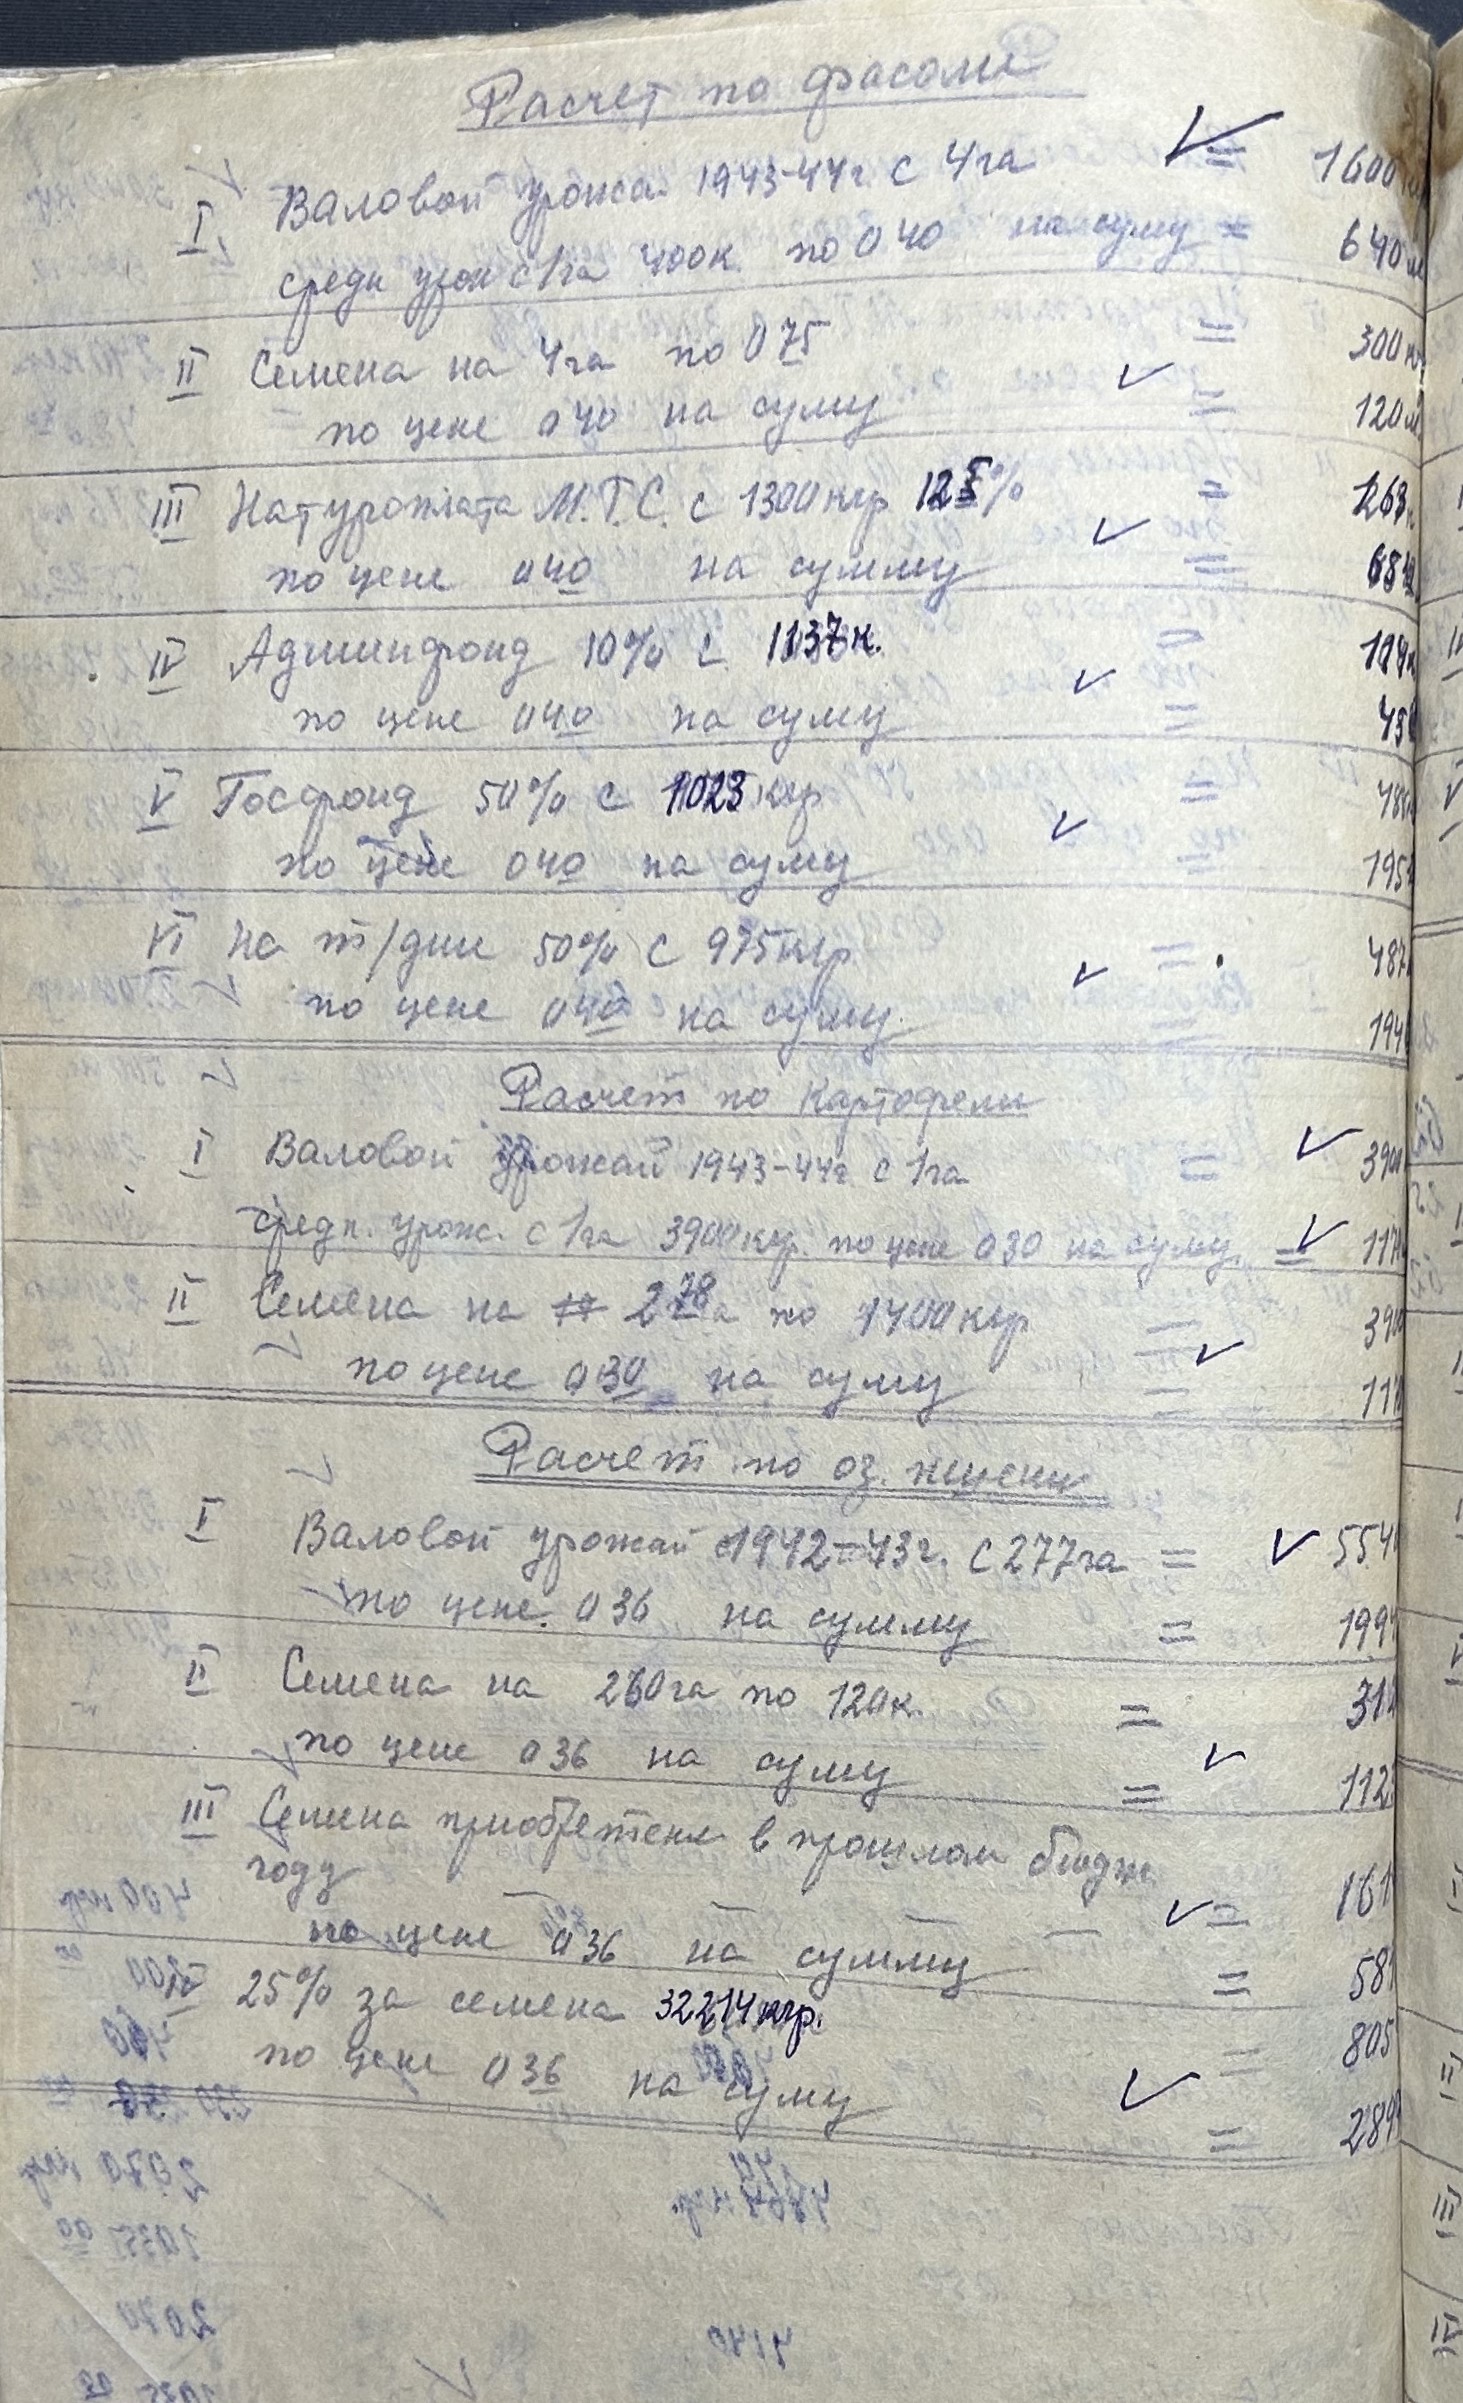 Расчет по фасоли
I Валовой урожай 1943-44г. с 4га = 1600
средн урож с 1га 400к. по 0 40 на суму = 640 м
II Семена на 4га по 0 75 = 300
по цене 0 40 на суму = 120 м
III Натуроплата М.Т.С. с 1300 кгр 12 5 % = 163
по цене 0 40 на сумму =
IV Админфонд 10% с 1137 к. = 114
по цене 0 40 на суму = 45
V Госфонд 50% с 1023 кгр = 488
по цене 0 40 на суму = 195
VI На т/дни 50% с 975 кгр = 487
по цене 0 40 на суму. = 194
Расчет по картофели
I Валовой урожай 1943-44г с 1га = 3900
средн. урож. с 1га 3900 кгр. по цене 0 30 на суму = 1170
II Семена на 2 78 га по 1400 кгр = 3900
по цене 0 30 на суму = 117
Расчет по оз. пшени
I Валовой урожай 1942-43г. с 277га = 554
по цене 0 36 на сумму = 1994
II Семена на 260га по 120к. = 312
по цене 0 36 на суму = 112
III Семена приобретени в прошлом бюдж.
году = 161
по цене 0 36 на сумму = 581
IV 25% за семена 32214 кгр. = 805
по цене 0 36 на суму = 289